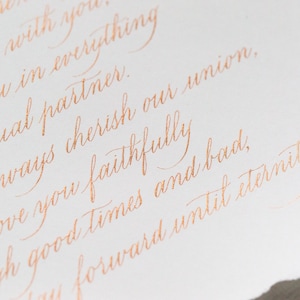 with you.
in everything
partner.
cherish our union,
love you faithfully
good times and bad,
forward until eternity